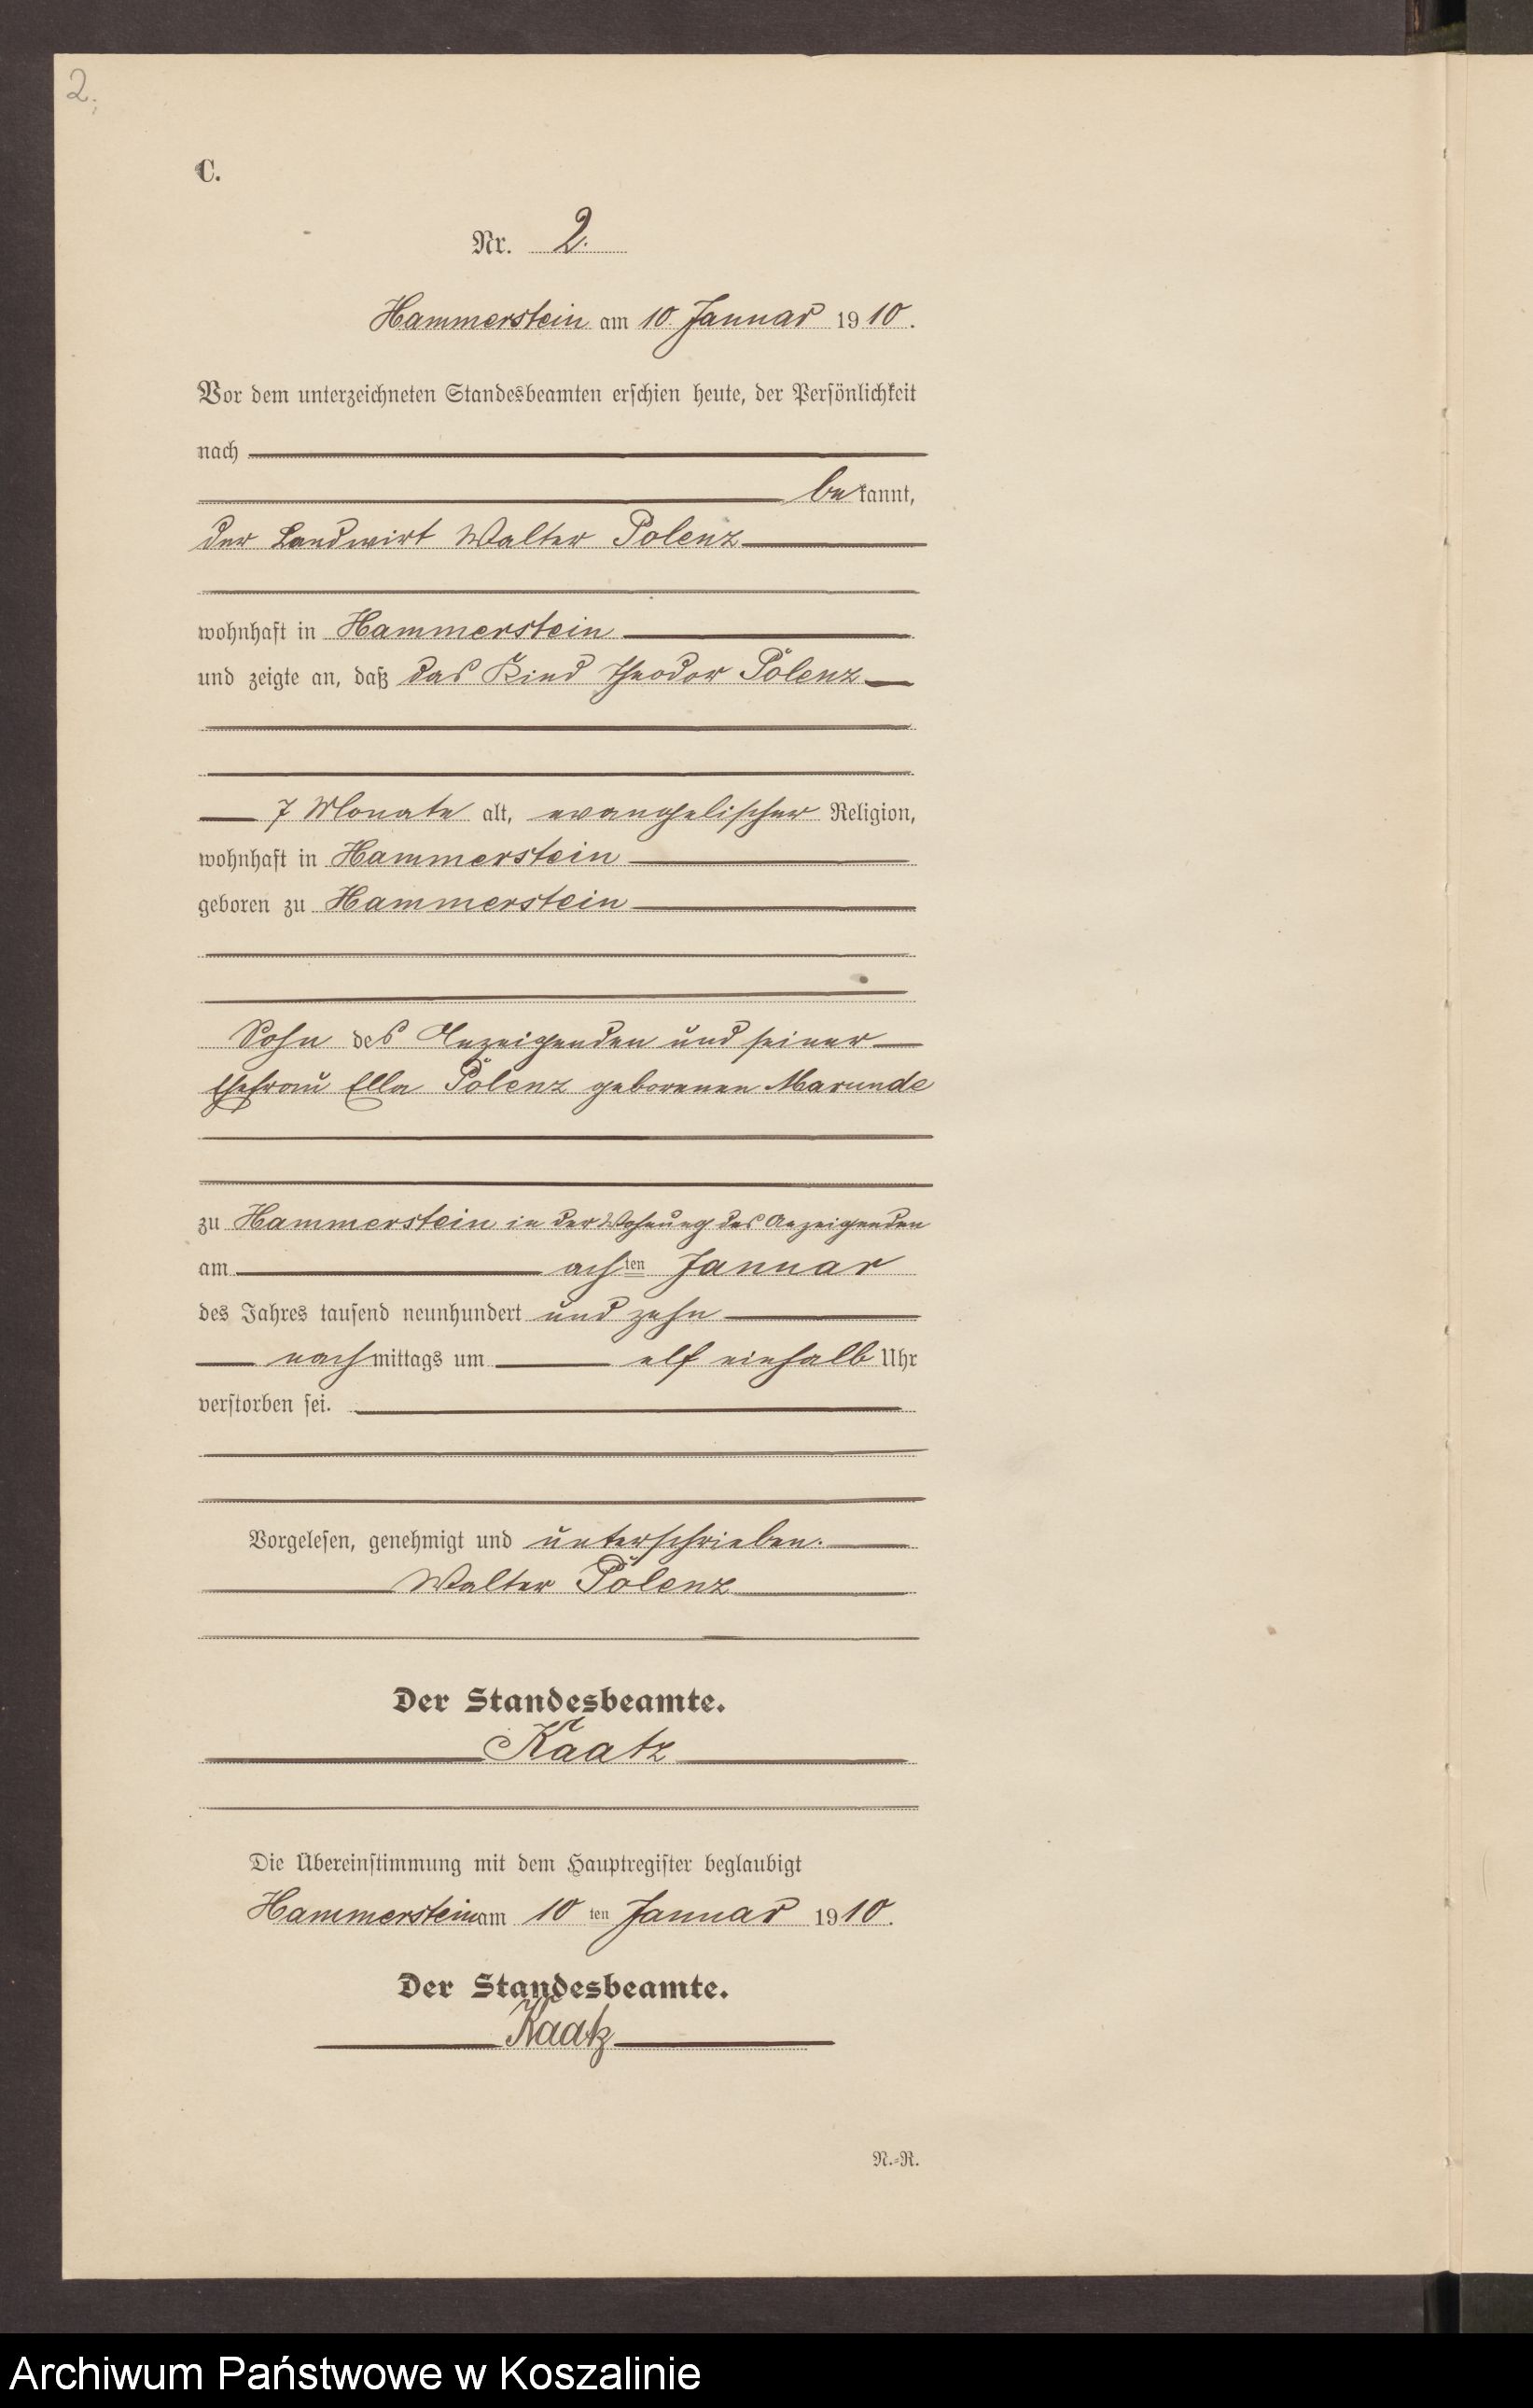 2.
C.
Nr. 2.
Hammerstein am 10. Januar 1910.
Vor dem unterzeichneten Standesbeamten erschien heute, der Persönlichkeit
nach
bekannt,
der Landwirt Walter Polenz
wohnhaft in Hammerstein
und zeigte an, daß das Kind Theodor Polenz
7 Monate alt, evangelischer Religion,
wohnhaft in Hammerstein
geboren zu Hammerstein
Sohn des Anzeigenden und seiner
Ehefrau Ella Polenz geborenen Marunde
zu Hammerstein in der Wohnung des Anzeigenden
am achten Januar
des Jahres tausend neunhundert und zehn
nachmittags um elf einhalb Uhr
verstorben sei.
Vorgelesen, genehmigt und unterschrieben.
Walter Polenz
Der Standesbeamte.
Kaatz
Die Übereinstimmung mit dem Hauptregister beglaubigt
Hammerstein am 10 ten Januar 1910.
Der Standesbeamte.
Kaatz
N.=R.
Archiwum Państwowe w Koszalinie